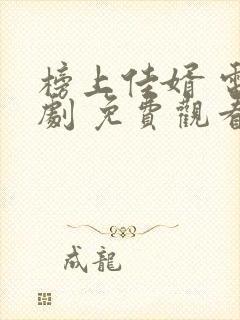 榜上佳婿 電
劇 免費觀看
成龍